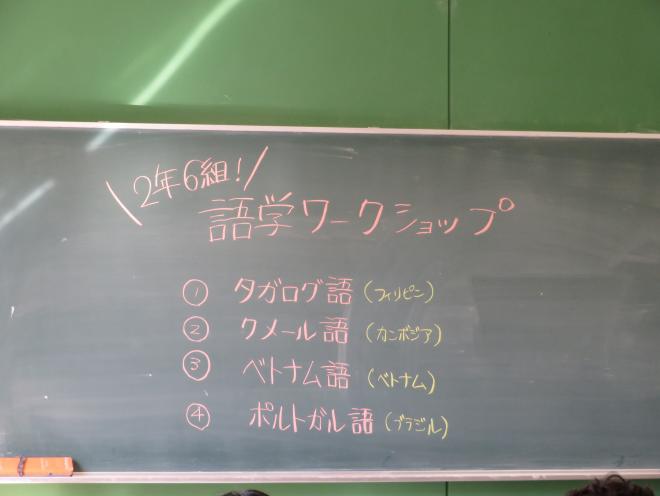 2年6組!
語学ワークショップ
① タガログ語 (フィリピン)
② クメール語 (カンボジア)
③ ベトナム語 (ベトナム)
④ ポルトガル語 (ブラジル)